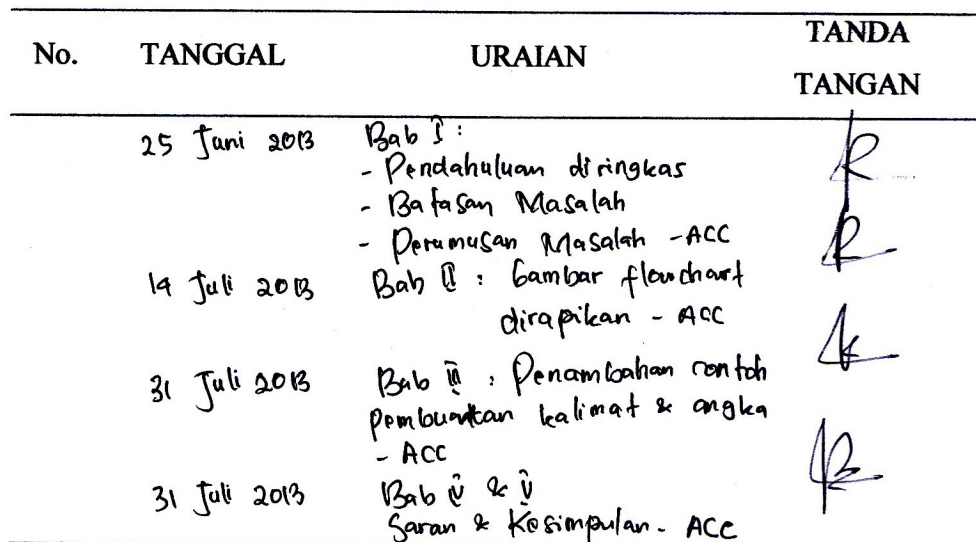 No. TANGGAL URAIAN TANDA TANGAN
25 Juni 2013 Bab I :
- Pendahuluan diringkas
- Batasan Masalah
- Perumusan Masalah - ACC
14 Juli 2013 Bab II : Gambar flowchart
dirapikan - ACC
31 Juli 2013 Bab III : Penambahan contoh
pembuatan kalimat & angka
- ACC
31 Juli 2013 Bab IV & V
Saran & Kesimpulan - ACC